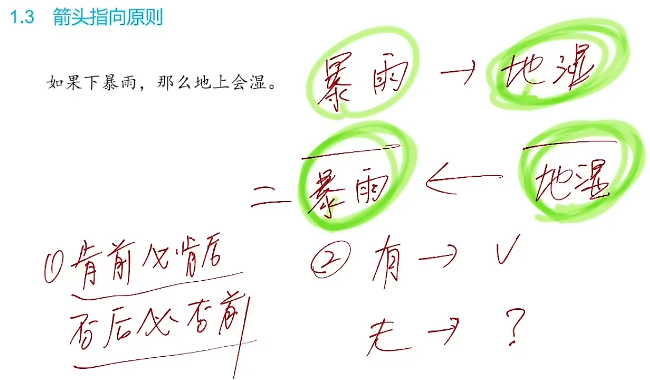 1.3 箭头指向原则
如果下暴雨，那么地上会湿。
暴雨 → 地湿
= 暴雨 ← 地湿
①肯前必肯后
否后必否前
② 有 → √
无 → ?